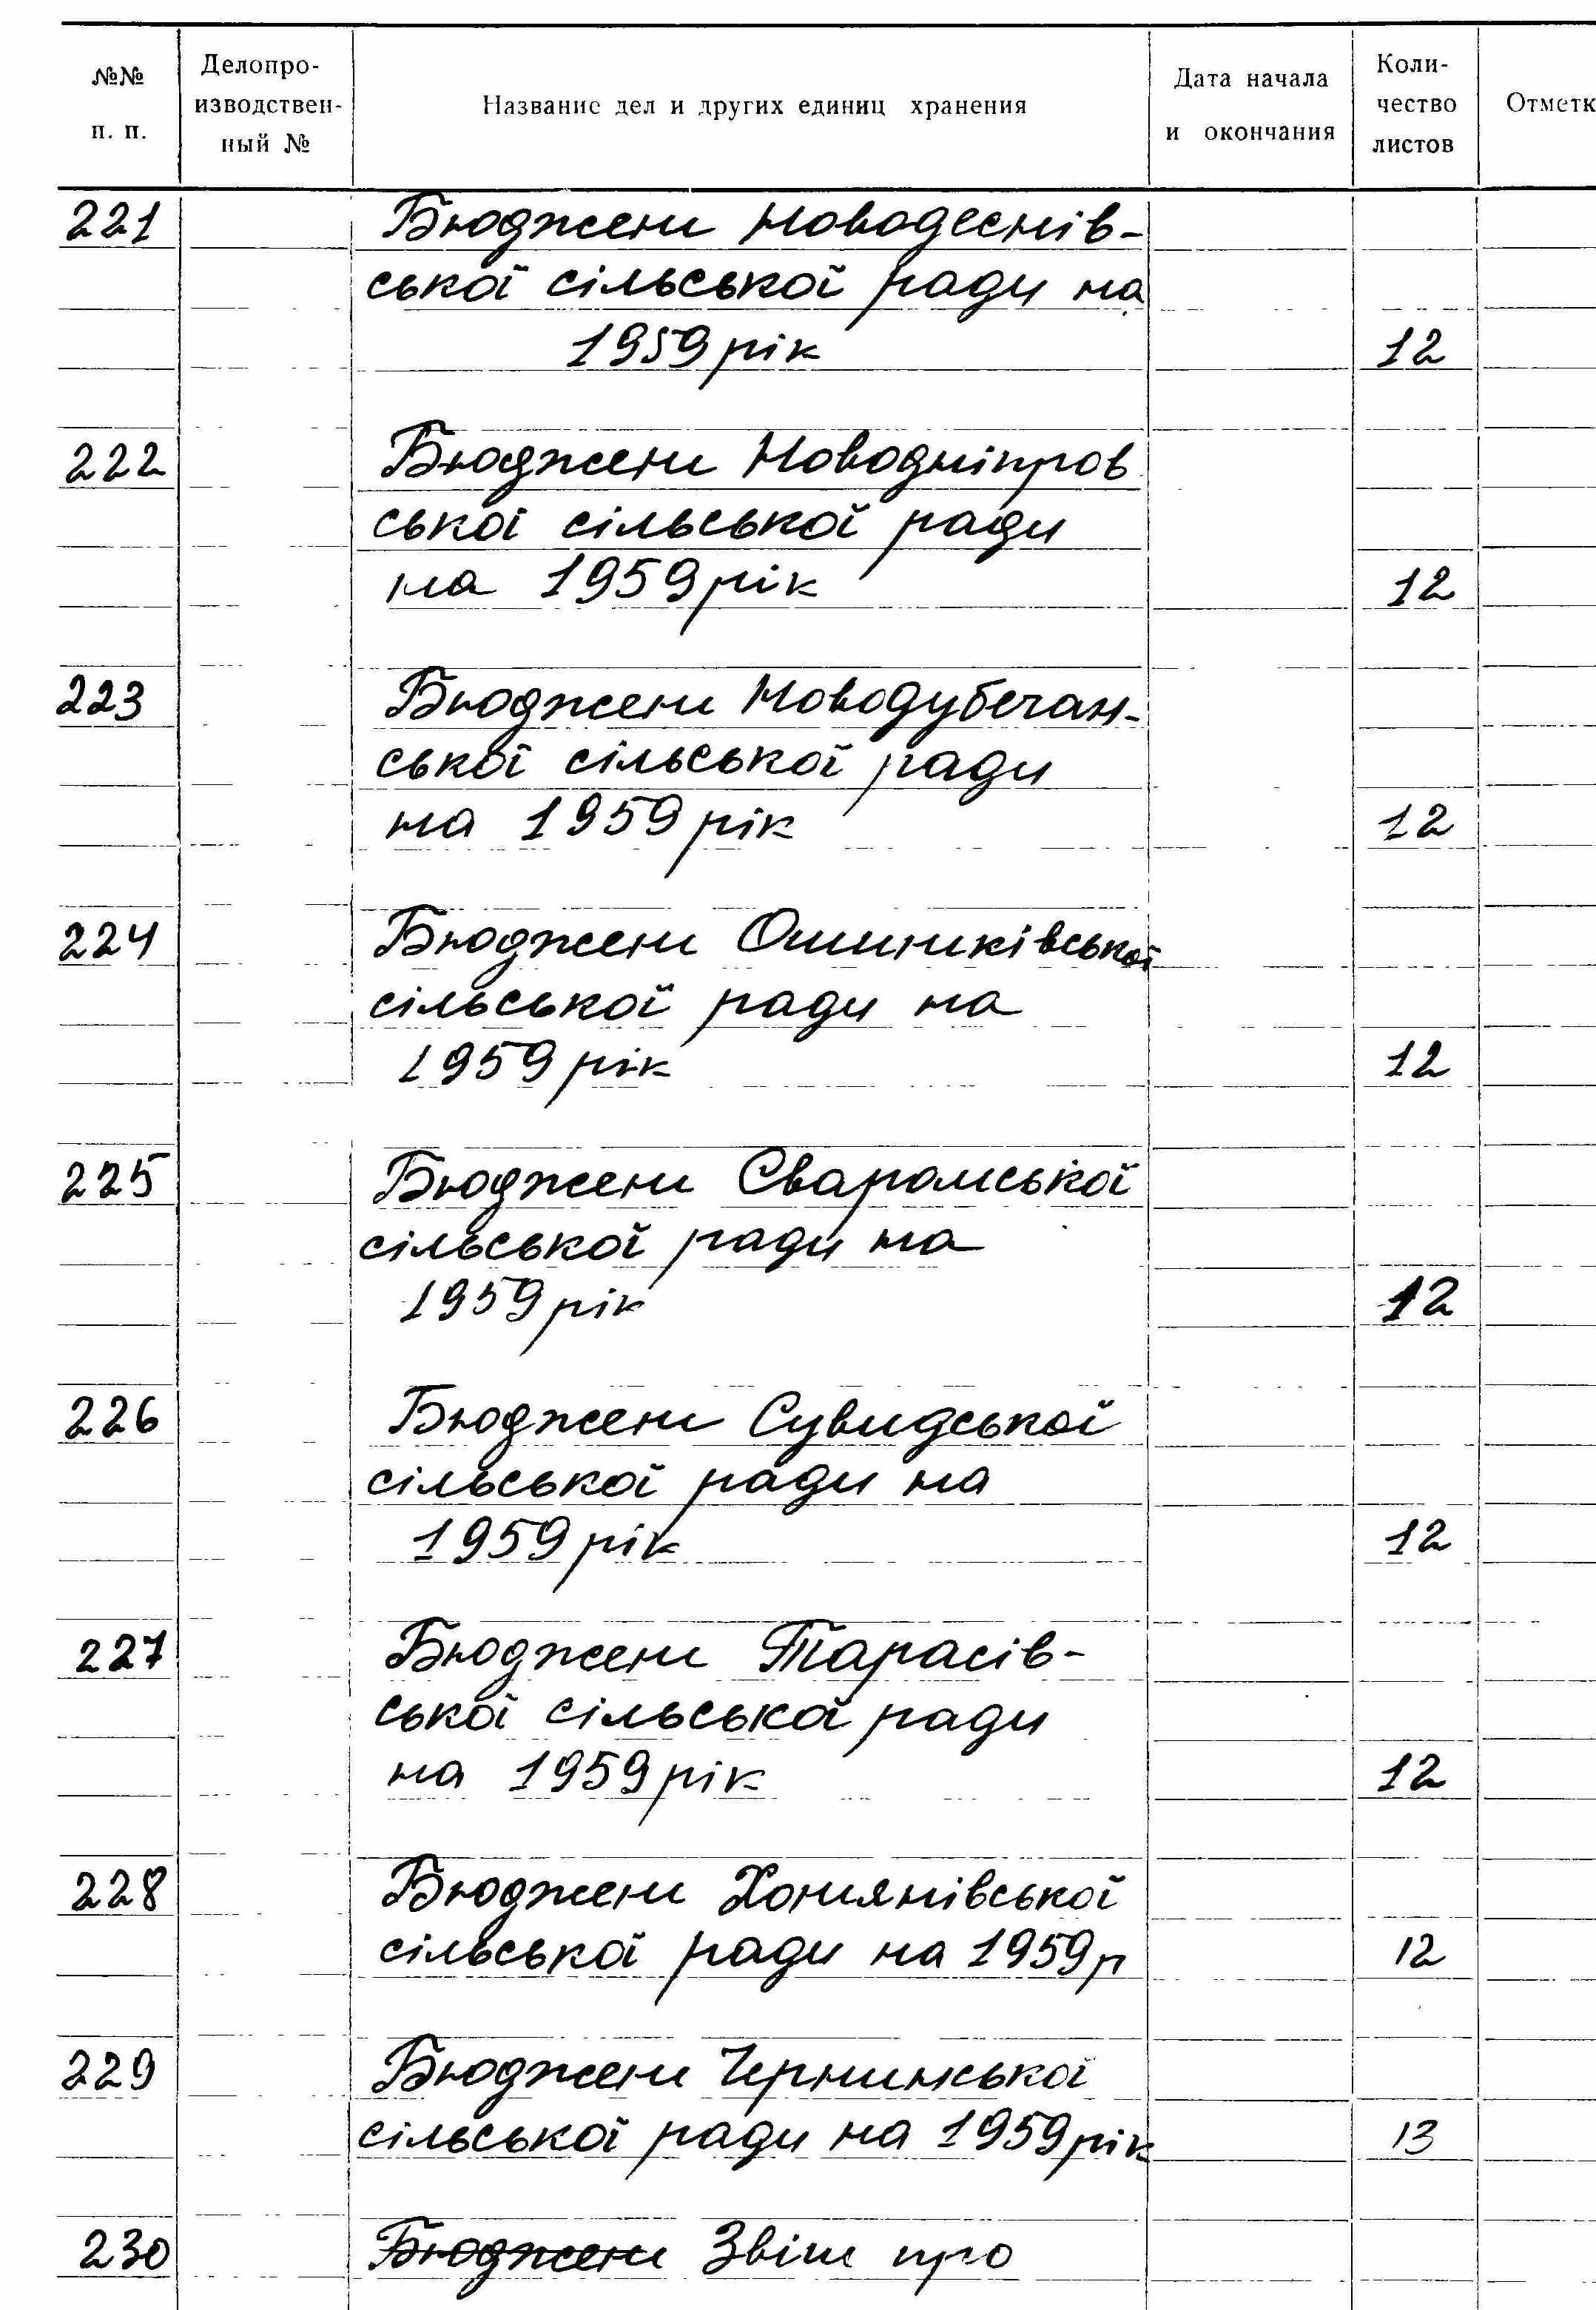 №№ п. п.
Делопро-
изводствен-
ный №
Название дел и других единиц хранения
Дата начала
и окончания
Коли-
чество
листов
Отметк
221 Бюджет Новодеснів-
ської сільської ради на
1959 рік 12
222 Бюджет Новодніпров
ської сільської ради
на 1959 рік 12
223 Бюджет Новодубечан-
ської сільської ради
на 1959 рік 12
224 Бюджет Ошитківської
сільської ради на
1959 рік 12
225 Бюджет Сваромської
сільської ради на
1959 рік 12
226 Бюджет Сувидської
сільської ради на
1959 рік 12
227 Бюджет Тарасів-
ської сільської ради
на 1959 рік 12
228 Бюджет Хотянівської
сільської ради на 1959 р 12
229 Бюджет Чернинської
сільської ради на 1959 рік 13
230 Бюджет Звіт про